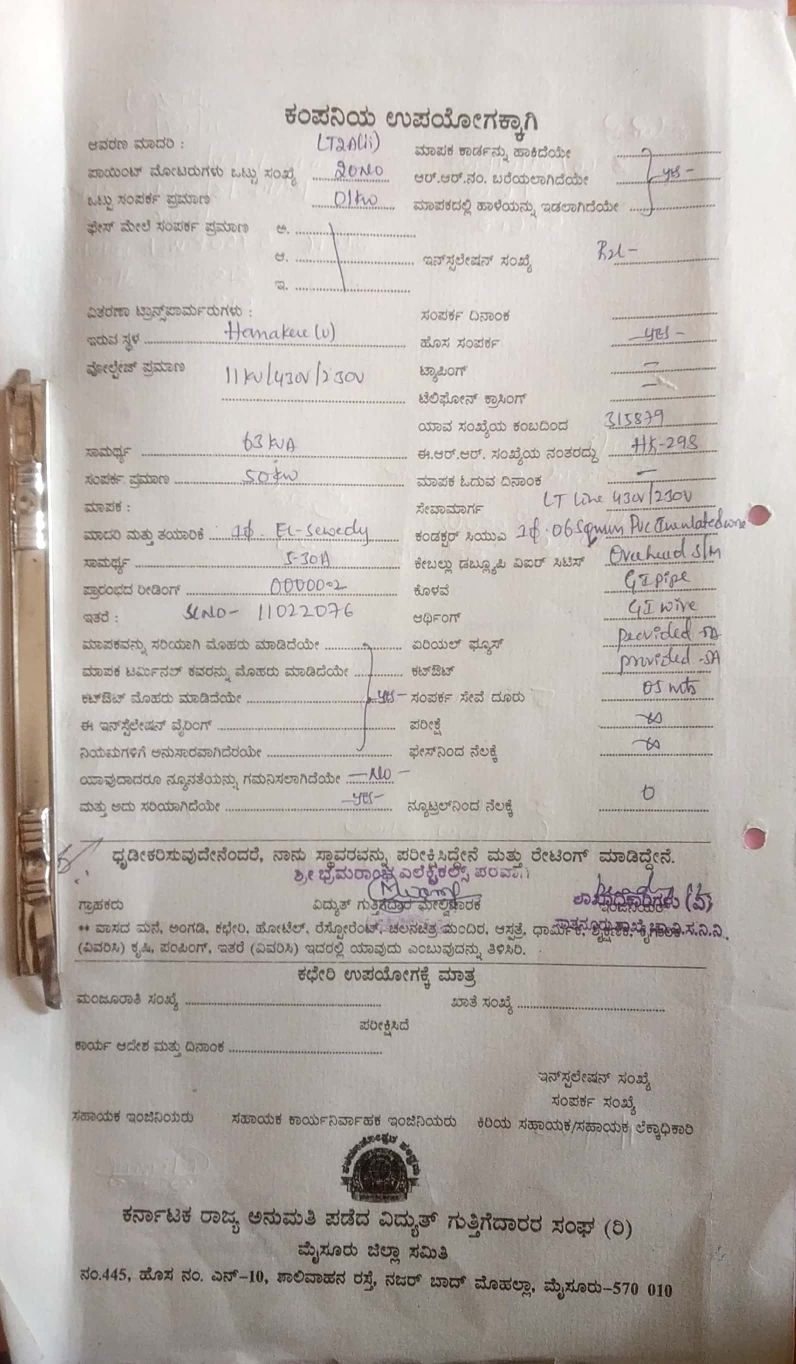 ಕಂಪನಿಯ ಉಪಯೋಗಕ್ಕಾಗಿ
ಆವರಣ ಮಾದರಿ : LT2A(ii) ಮಾಪಕ ಕಾರ್ಡನ್ನು ಹಾಕಿದೆಯೇ
ಪಾಯಿಂಟ್ ಮೋಟರುಗಳು ಒಟ್ಟು ಸಂಖ್ಯೆ 20NO ಆರ್.ಆರ್.ನಂ. ಬರೆಯಲಾಗಿದೆಯೇ yes -
ಒಟ್ಟು ಸಂಪರ್ಕ ಪ್ರಮಾಣ 01KW ಮಾಪಕದಲ್ಲಿ ಹಾಳೆಯನ್ನು ಇಡಲಾಗಿದೆಯೇ
ಫೇಸ್ ಮೇಲೆ ಸಂಪರ್ಕ ಪ್ರಮಾಣ ಅ.
ಆ. ಇನ್‌ಸ್ಟಲೇಷನ್ ಸಂಖ್ಯೆ
ಇ.
ವಿತರಣಾ ಟ್ರಾನ್ಸ್‌ಫಾರ್ಮರುಗಳು : ಸಂಪರ್ಕ ದಿನಾಂಕ
ಇರುವ ಸ್ಥಳ Hanakere (v) ಹೊಸ ಸಂಪರ್ಕ - yes -
ವೋಲ್ಟೇಜ್ ಪ್ರಮಾಣ 11KV/430V/230V ಟ್ಯಾಪಿಂಗ್ -
ಟೆಲಿಫೋನ್ ಕ್ರಾಸಿಂಗ್ -
ಯಾವ ಸಂಖ್ಯೆಯ ಕಂಬದಿಂದ 315879
ಸಾಮರ್ಥ್ಯ 63 KVA ಈ.ಆರ್.ಆರ್. ಸಂಖ್ಯೆಯ ನಂತರದ್ದು HK-298
ಸಂಪರ್ಕ ಪ್ರಮಾಣ 50KW ಮಾಪಕ ಓದುವ ದಿನಾಂಕ -
ಮಾಪಕ : ಸೇವಾಮಾರ್ಗ LT Line 430V/230V
ಮಾದರಿ ಮತ್ತು ತಯಾರಿಕೆ 1ϕ. EL-Sewedy ಕಂಡಕ್ಟರ್ ಸಿಯುಎ 1ϕ. 06Sqmm PVC
ಸಾಮರ್ಥ್ಯ 5-30A ಕೇಬಲ್ಲು ಡಬ್ಲ್ಯೂಪಿ ವಿಐರ್ ಸಿಟಿಸ್ Overhead S/M
ಪ್ರಾರಂಭದ ರೀಡಿಂಗ್ 00000.2 ಕೊಳವೆ GI pipe
ಇತರೆ : SL NO - 11022076 ಅರ್ಥಿಂಗ್ GI wire
ಮಾಪಕವನ್ನು ಸರಿಯಾಗಿ ಮೊಹರು ಮಾಡಿದೆಯೇ ಏರಿಯಲ್ ಫ್ಯೂಸ್ provided -5A
ಮಾಪಕ ಟರ್ಮಿನಲ್ ಕವರನ್ನು ಮೊಹರು ಮಾಡಿದೆಯೇ ಕಟ್‌ಔಟ್ provided -5A
ಕಟ್‌ಔಟ್ ಮೊಹರು ಮಾಡಿದೆಯೇ yes - ಸಂಪರ್ಕ ಸೇವೆ ದೂರು 05 mts
ಈ ಇನ್‌ಸ್ಟೆಲೇಷನ್ ವೈರಿಂಗ್ ಪರೀಕ್ಷೆ
ನಿಯಮಗಳಿಗೆ ಅನುಸಾರವಾಗಿದೆರಯೇ ಫೇಸ್‌ನಿಂದ ನೆಲಕ್ಕೆ
ಯಾವುದಾದರೂ ನ್ಯೂನತೆಯನ್ನು ಗಮನಿಸಲಾಗಿದೆಯೇ - No -
ಮತ್ತು ಅದು ಸರಿಯಾಗಿದೆಯೇ - yes - ನ್ಯೂಟ್ರಲ್‌ನಿಂದ ನೆಲಕ್ಕೆ 0
ಧೃಡೀಕರಿಸುವುದೇನೆಂದರೆ, ನಾನು ಸ್ಥಾವರವನ್ನು ಪರೀಕ್ಷಿಸಿದ್ದೇನೆ ಮತ್ತು ರೇಟಿಂಗ್ ಮಾಡಿದ್ದೇನೆ.
ಶ್ರೀ ಭ್ರಮರಾಂಭ ಎಲೆಕ್ಟ್ರಿಕಲ್ಸ್
ಗ್ರಾಹಕರು ವಿದ್ಯುತ್ ಗುತ್ತಿಗೆದಾರ ಮೇಲ್ವಿಚಾರಕ ಶಾಖಾಧಿಕಾರಿಗಳು (ವಿ)
** ವಾಸದ ಮನೆ, ಅಂಗಡಿ, ಕಛೇರಿ, ಹೋಟೆಲ್, ರೆಸ್ಟೋರೆಂಟ್, ಚಲನಚಿತ್ರ ಮಂದಿರ, ಆಸ್ಪತ್ರೆ, ಧಾರ್ಮಿಕ, ಶೈಕ್ಷಣಿಕ,
(ವಿವರಿಸಿ) ಕೃಷಿ, ಪಂಪಿಂಗ್, ಇತರೆ (ವಿವರಿಸಿ) ಇದರಲ್ಲಿ ಯಾವುದು ಎಂಬುವುದನ್ನು ತಿಳಿಸಿರಿ.
ಕಛೇರಿ ಉಪಯೋಗಕ್ಕೆ ಮಾತ್ರ
ಮಂಜೂರಾತಿ ಸಂಖ್ಯೆ ಖಾತೆ ಸಂಖ್ಯೆ
ಪರೀಕ್ಷಿಸಿದೆ
ಕಾರ್ಯ ಆದೇಶ ಮತ್ತು ದಿನಾಂಕ
ಇನ್‌ಸ್ಟಲೇಷನ್ ಸಂಖ್ಯೆ
ಸಂಪರ್ಕ ಸಂಖ್ಯೆ
ಸಹಾಯಕ ಇಂಜಿನಿಯರು ಸಹಾಯಕ ಕಾರ್ಯನಿರ್ವಾಹಕ ಇಂಜಿನಿಯರು ಕಿರಿಯ ಸಹಾಯಕ/ಸಹಾಯಕ ಲೆಕ್ಕಾಧಿಕಾರಿ
ಕರ್ನಾಟಕ ರಾಜ್ಯ ಅನುಮತಿ ಪಡೆದ ವಿದ್ಯುತ್ ಗುತ್ತಿಗೆದಾರರ ಸಂಘ (ರಿ)
ಮೈಸೂರು ಜಿಲ್ಲಾ ಸಮಿತಿ
ನಂ.445, ಹೊಸ ನಂ. ಎನ್-10, ಶಾಲಿವಾಹನ ರಸ್ತೆ, ನಜರ್ ಬಾದ್ ಮೊಹಲ್ಲಾ, ಮೈಸೂರು-570 010